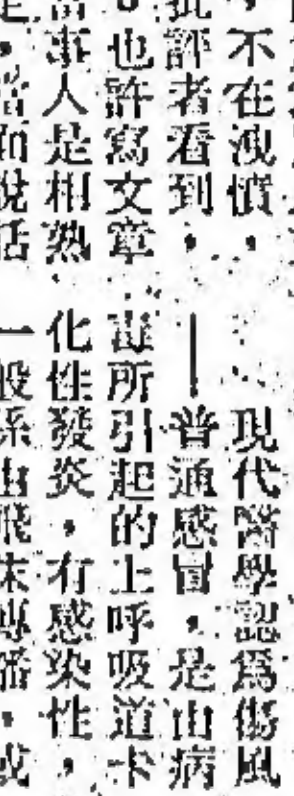 ，不在洩憤，
批評者看到，
。也許寫文章
事人是相熟
現代醫學認爲傷風
——普通感冒，是由病
毒所引起的上呼吸道卡
化性發炎，有感染性，
一般係由飛沫傳播，或